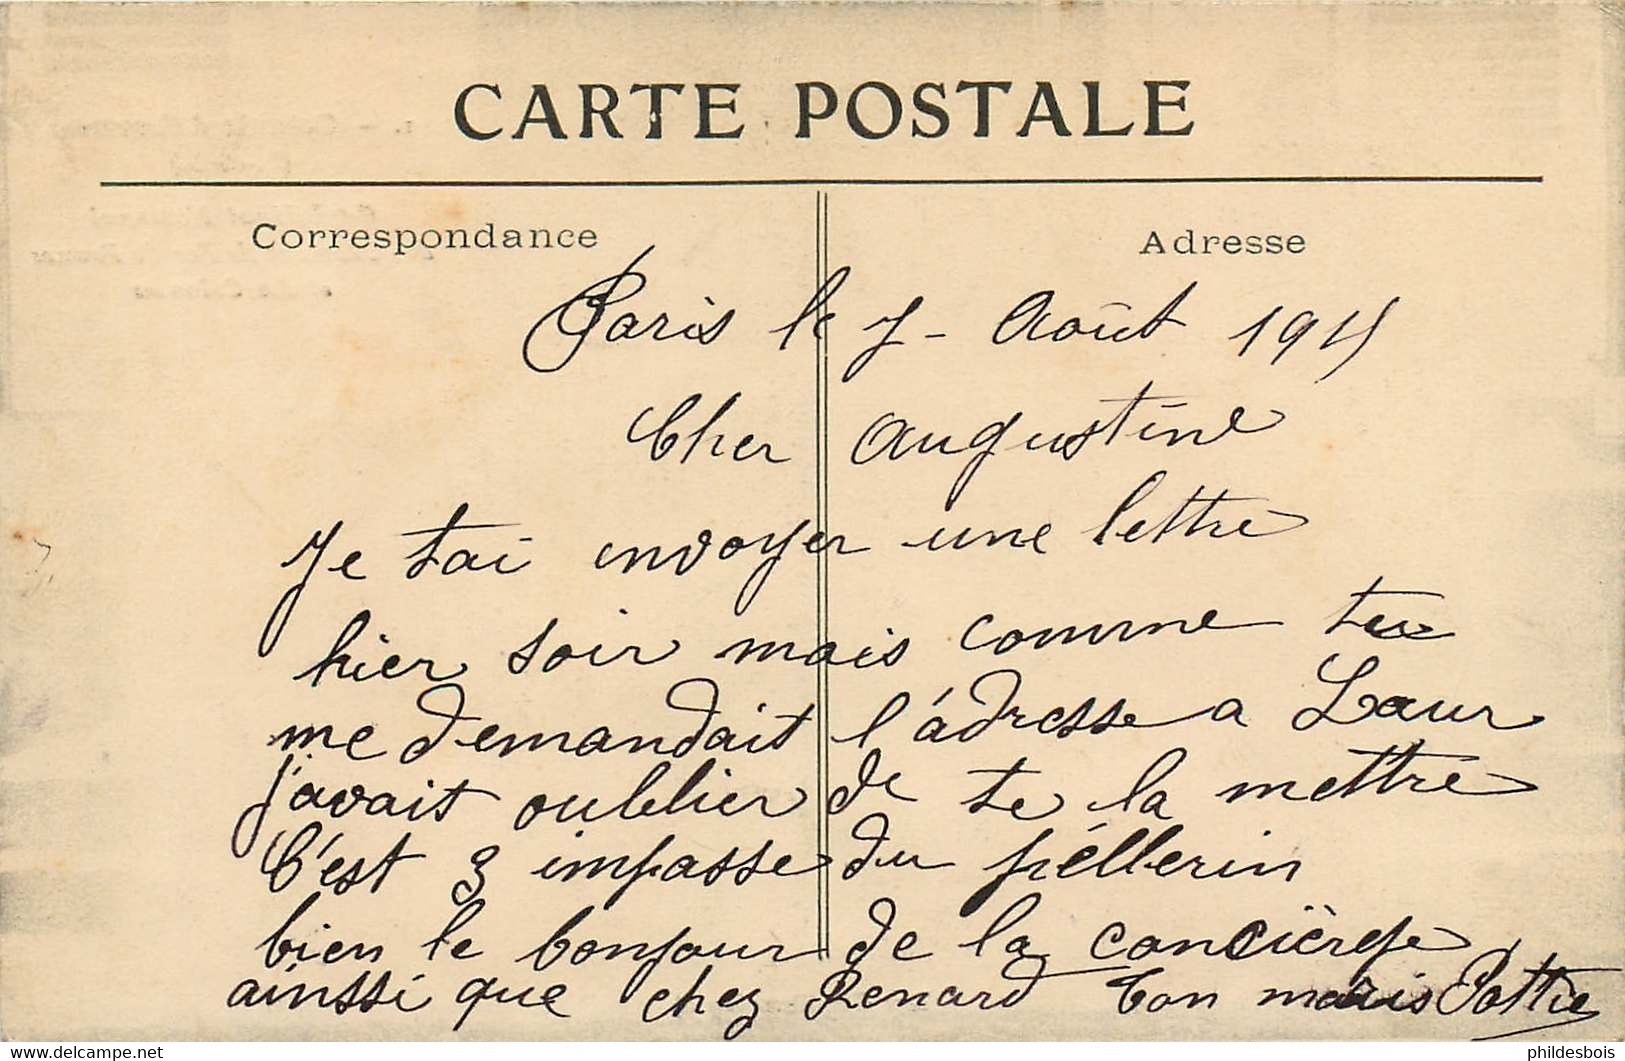 CARTE POSTALE
Correspondance
Adresse
Paris le 7 - Août 1915
Cher Augustine
Je tai envoyer une lettre
hier soir mais comme tu
me demandait l'adresse a Laur
j'avait oublier de te la mettre
C'est 3 impasse du péllerin
bien le bonjour de la concièrge
ainssi que chez Renard ton maris
phildesbois